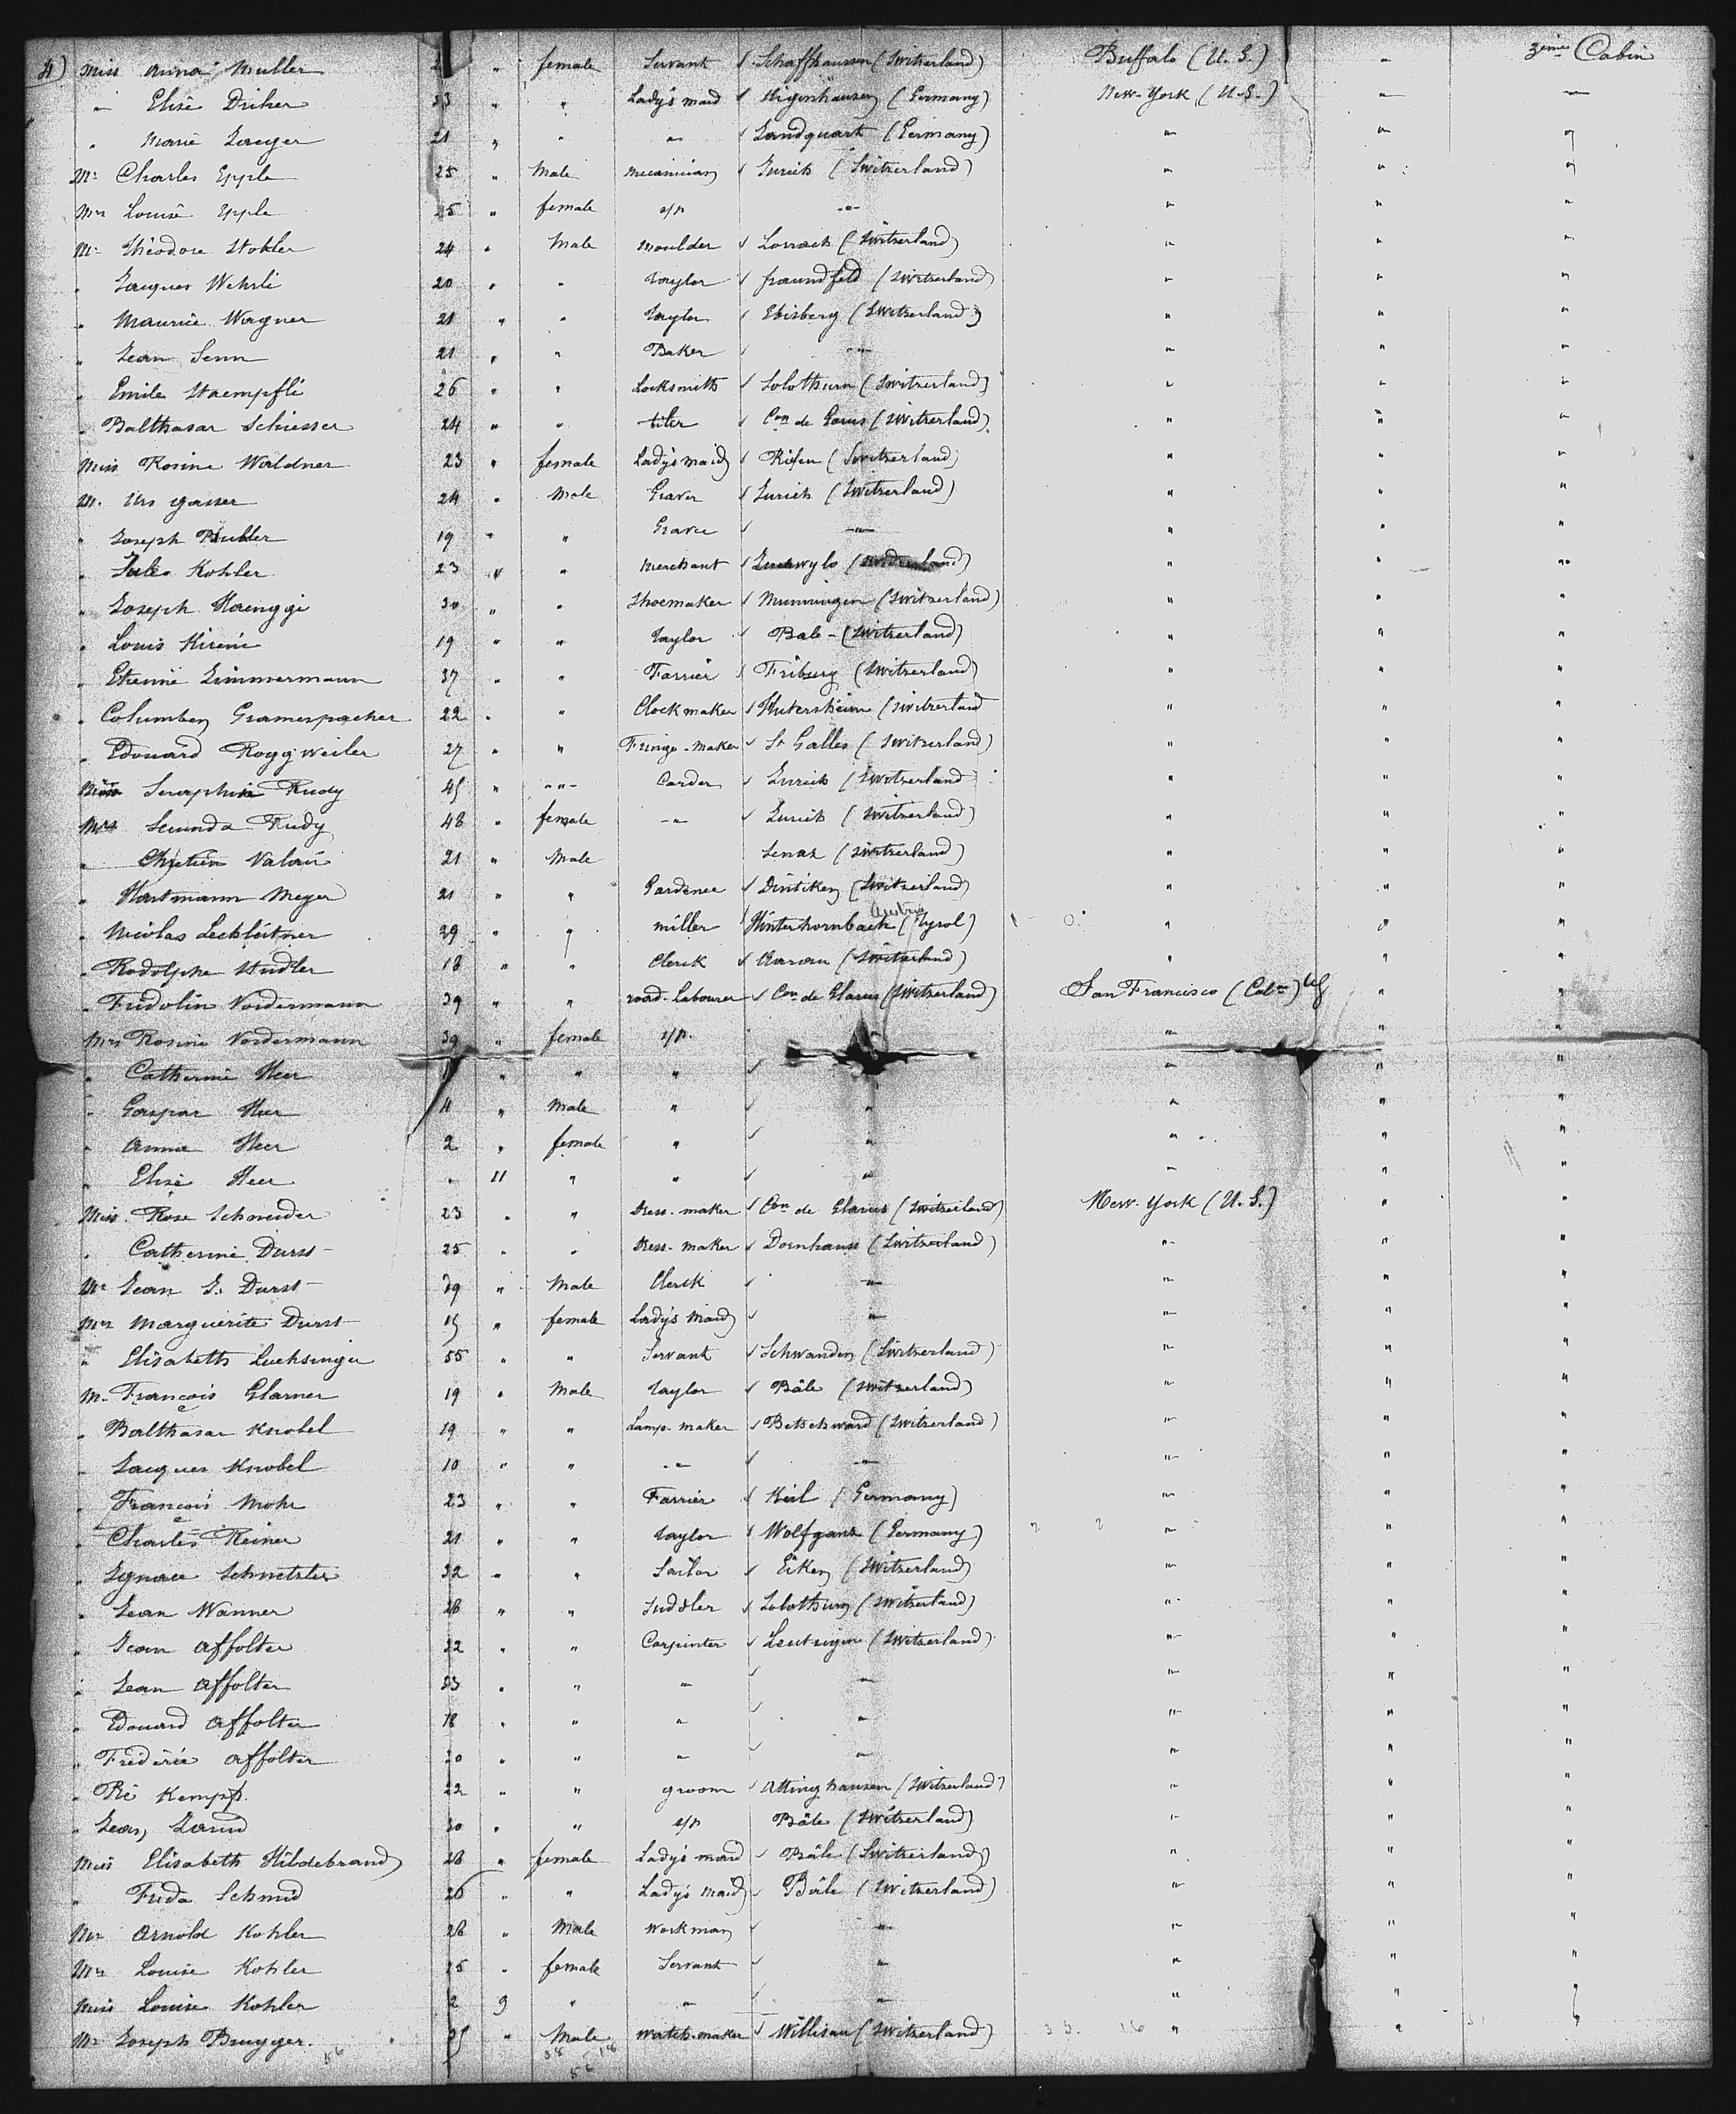 4) Miss Anna Muller " female Servant Schaffhausen (Switzerland) Buffalo (U.S.) " 3ème Cabin
" Elise Driher 33 " " Lady's maid (Germany) New-York (U.S.) " "
" Marie Jaeger 21 " " " Landquart (Germany) " " "
Mr Charles Epple 25 " Male Mecanician Zurich (Switzerland) " " "
Mrs Louise Epple 25 " female s/p " " " "
Mr Théodore Stohler 24 " Male Moulder Lorrach (Switzerland) " " "
" Jacques Wehrli 20 " " Taylor Fraundfeld (Switzerland) " " "
" Maurice Wagner 21 " " Taylor Ebisberg (Switzerland) " " "
" Jean Senn 21 " " Baker " " " "
" Emile Staempfli 26 " " Locksmith Solothurn (Switzerland) " " "
" Balthasar Schiesser 24 " " tiler Con de Glarus (Switzerland) " " "
Miss Rosine Waldner 23 " female Lady's maid (Switzerland) " " "
M. Urs Gasser 24 " Male Graver Zurich (Switzerland) " " "
" Joseph Buhler 19 " " Graver " " " "
" Jules Kohler 23 " " Merchant (Switzerland) " " "
" Joseph Haenggi 30 " " Shoemaker Munningen (Switzerland) " " "
" Louis 19 " " Taylor Bale - (Switzerland) " " "
" Etienne Zimmermann 37 " " Farrier Friburg (Switzerland) " " "
" Columben Gramespacher 22 " " Clockmaker (Switzerland " " "
" Edouard Roggweiler 27 " " Fringe-maker St Galles (Switzerland) " " "
Seraphin Rudy 45 " " Carder Zurich (Switzerland " " "
Mrs Secunda Rudy 48 " female " Zurich (Switzerland) " " "
" Chretien Valari 21 " Male (Switzerland) " " "
" Hartmann Meyer 21 " " Gardener Dintiken (Switzerland) " " "
" Nicolas Lechleitner 29 " " Miller Hinterhornbach (Tyrol) Austria " " "
" Rodolphe Studler 18 " " Clerck Aarau (Switzerland) " " "
" Fridolin Vordermann 39 " " road-Labourer Con de Glarus (Switzerland) San Francisco (Cal) US " "
Mrs Rosine Vordermann 39 " female s/p. " " " "
" Catherine Heer " " " " " "
" Gaspar Heer 4 " Male " " " " "
" Anna Heer 2 " female " " " " "
" Elise Heer " 11 " " " " " "
Miss Rose Schneider 23 " " Dress-maker Con de Glarus (Switzerland) New-York (U.S.) " "
" Catherine Durst 25 " " Dress-maker Dornhaus (Switzerland) " " "
Mr Jean J. Durst 39 " Male Clerck " " " "
Mrs Marguerite Durst " female Lady's Maid " " " "
" Elisabeth Luchsinger 55 " " Servant Schwanden (Switzerland) " " "
M. François Glarner 19 " Male Taylor Bâle (Switzerland) " " "
" Balthasar Knobel 19 " " Lamp-maker Betschward (Switzerland) " " "
" Jacques Knobel 10 " " " " " " "
" François Mohr 23 " " Farrier Kiel (Germany) " " "
" Charles Reiner 21 " " Taylor Wolfgang (Germany) " " "
" Ignace Schmetzler 32 " " Sailor Eiken (Switzerland) " " "
" Jean Wanner 28 " " Suddler Solothurn (Switzerland) " " "
" Jean Affolter 32 " " Carpenter Leutzigen (Switzerland) " " "
" Jean Affolter 23 " " " " " " "
" Edouard Affolter 18 " " " " " " "
" Frédéric Affolter 20 " " " " " " "
" Pie Kempf. 22 " " groom Attinghausen (Switzerland) " " "
" Jean 30 " " s/p Bâle (Switzerland) " " "
Miss Elisabeth Hildebrand 28 " female Lady's maid Bâle (Switzerland) " " "
" Frida Schmid 26 " " Lady's maid Bâle (Switzerland) " " "
Mr Arnold Kohler 28 " Male Workman " " " "
Mrs Louise Kohler 25 " female Servant " " " "
Miss Louise Kohler 2 9 " " " " " "
Mr Joseph Brugger. " Male Watch-maker Willisau (Switzerland) " " "
56 38 18
56